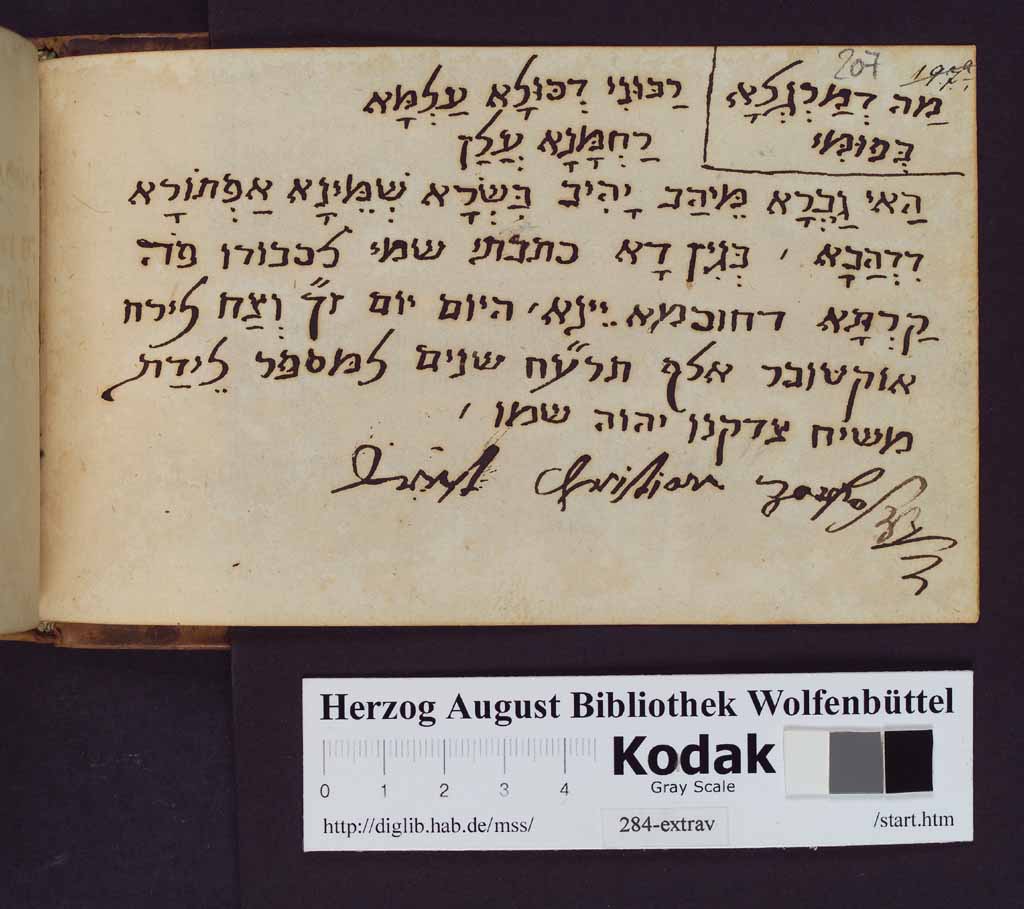 207
מַה דְמַרְגְלָא
בְּפוּמִי
רַבּוּנִי דְכּוּלָא עַלְמָא
רַחְמָנָא עֲלַן
הַאי גַבְרָא מֵיהַב יָהִיב בִּשְׂרָא שְׁמֵינָא אַפְּתוֹרָא
דִדְהַבָא ׳ בְּגִין דָא כתבתי שמי לכבודו פֹה
קַרְתָּא דחוכמא יינא ׳ היום יום זך וְצַח לירח
אוקטובר אלף תרע״ח שנים למספר לֵידַת
משיח צדקנו יהוה שמו ׳
Christian
Herzog August Bibliothek Wolfenbüttel
Kodak
Gray Scale
0 1 2 3 4
http://diglib.hab.de/mss/ 284-extrav /start.htm